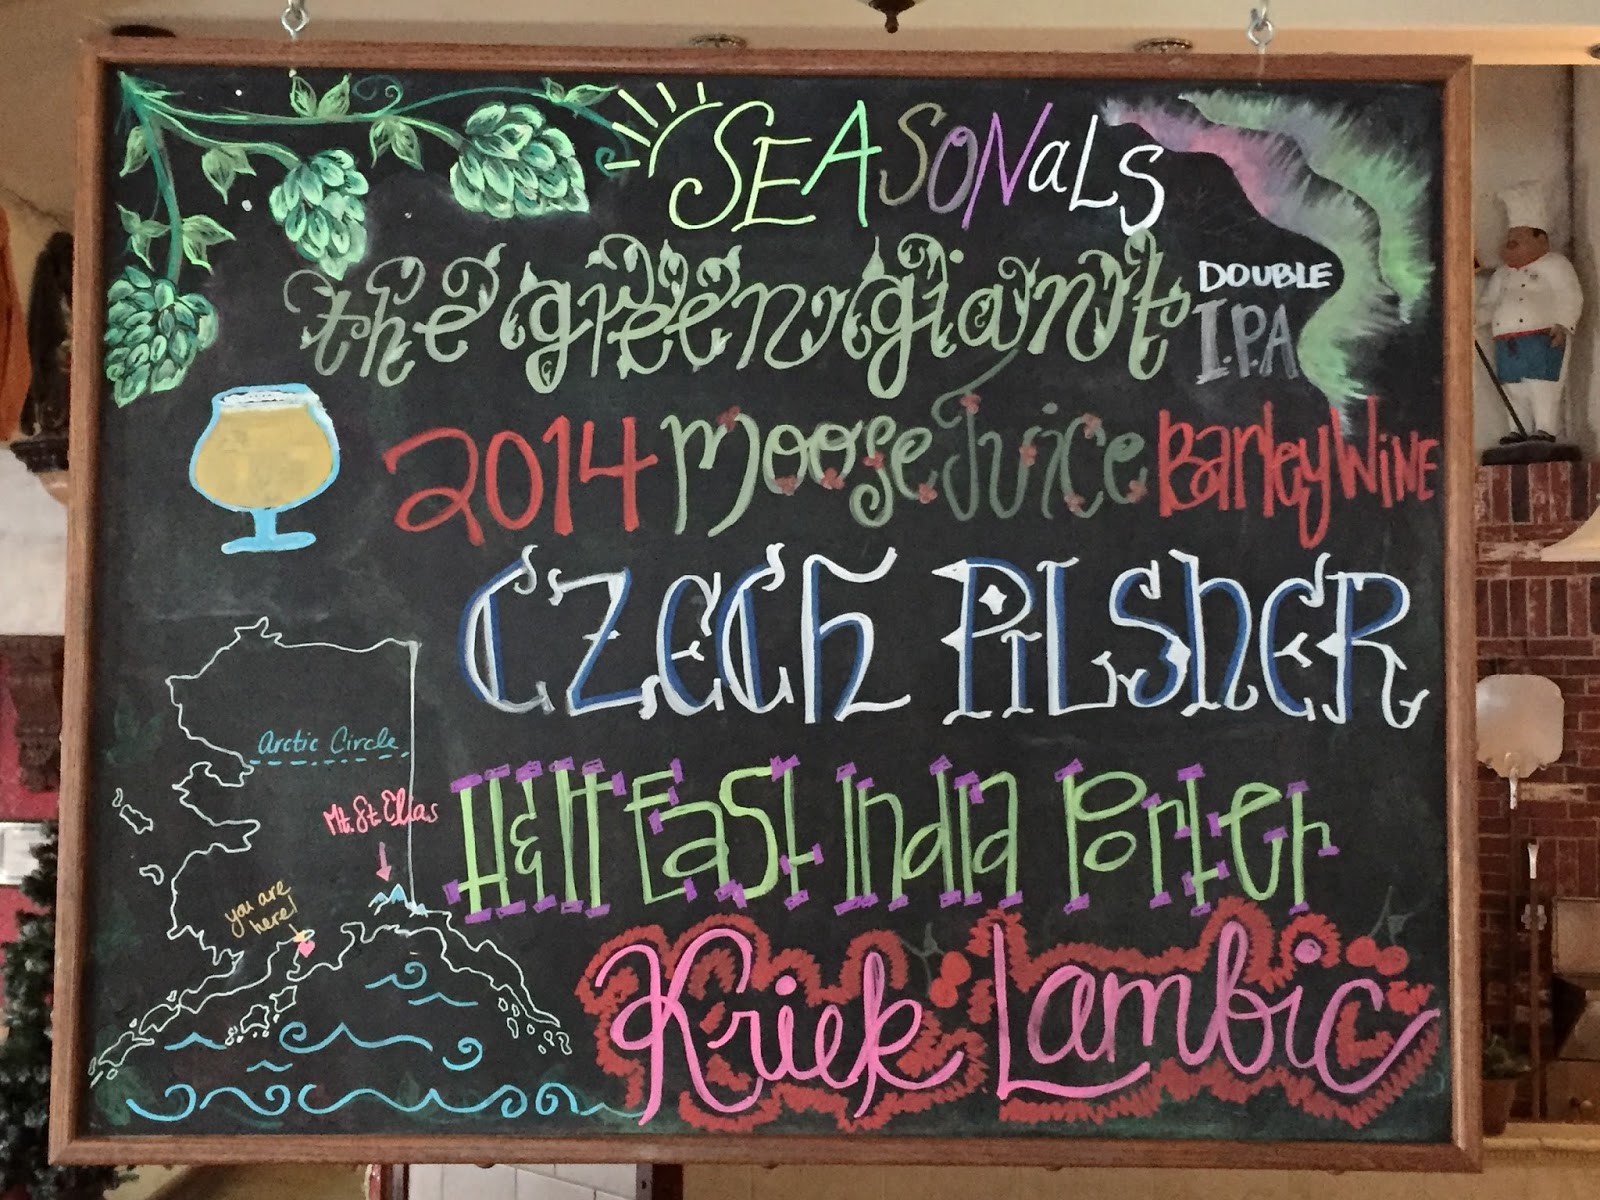 SEASONaLS
the green giant DOUBLE I.P.A
2014 Moose Juice Barley Wine
CZECH PILSNER
Arctic Circle
Mt. St. Elias
H&H East India Porter
you are here!
Kriek Lambic